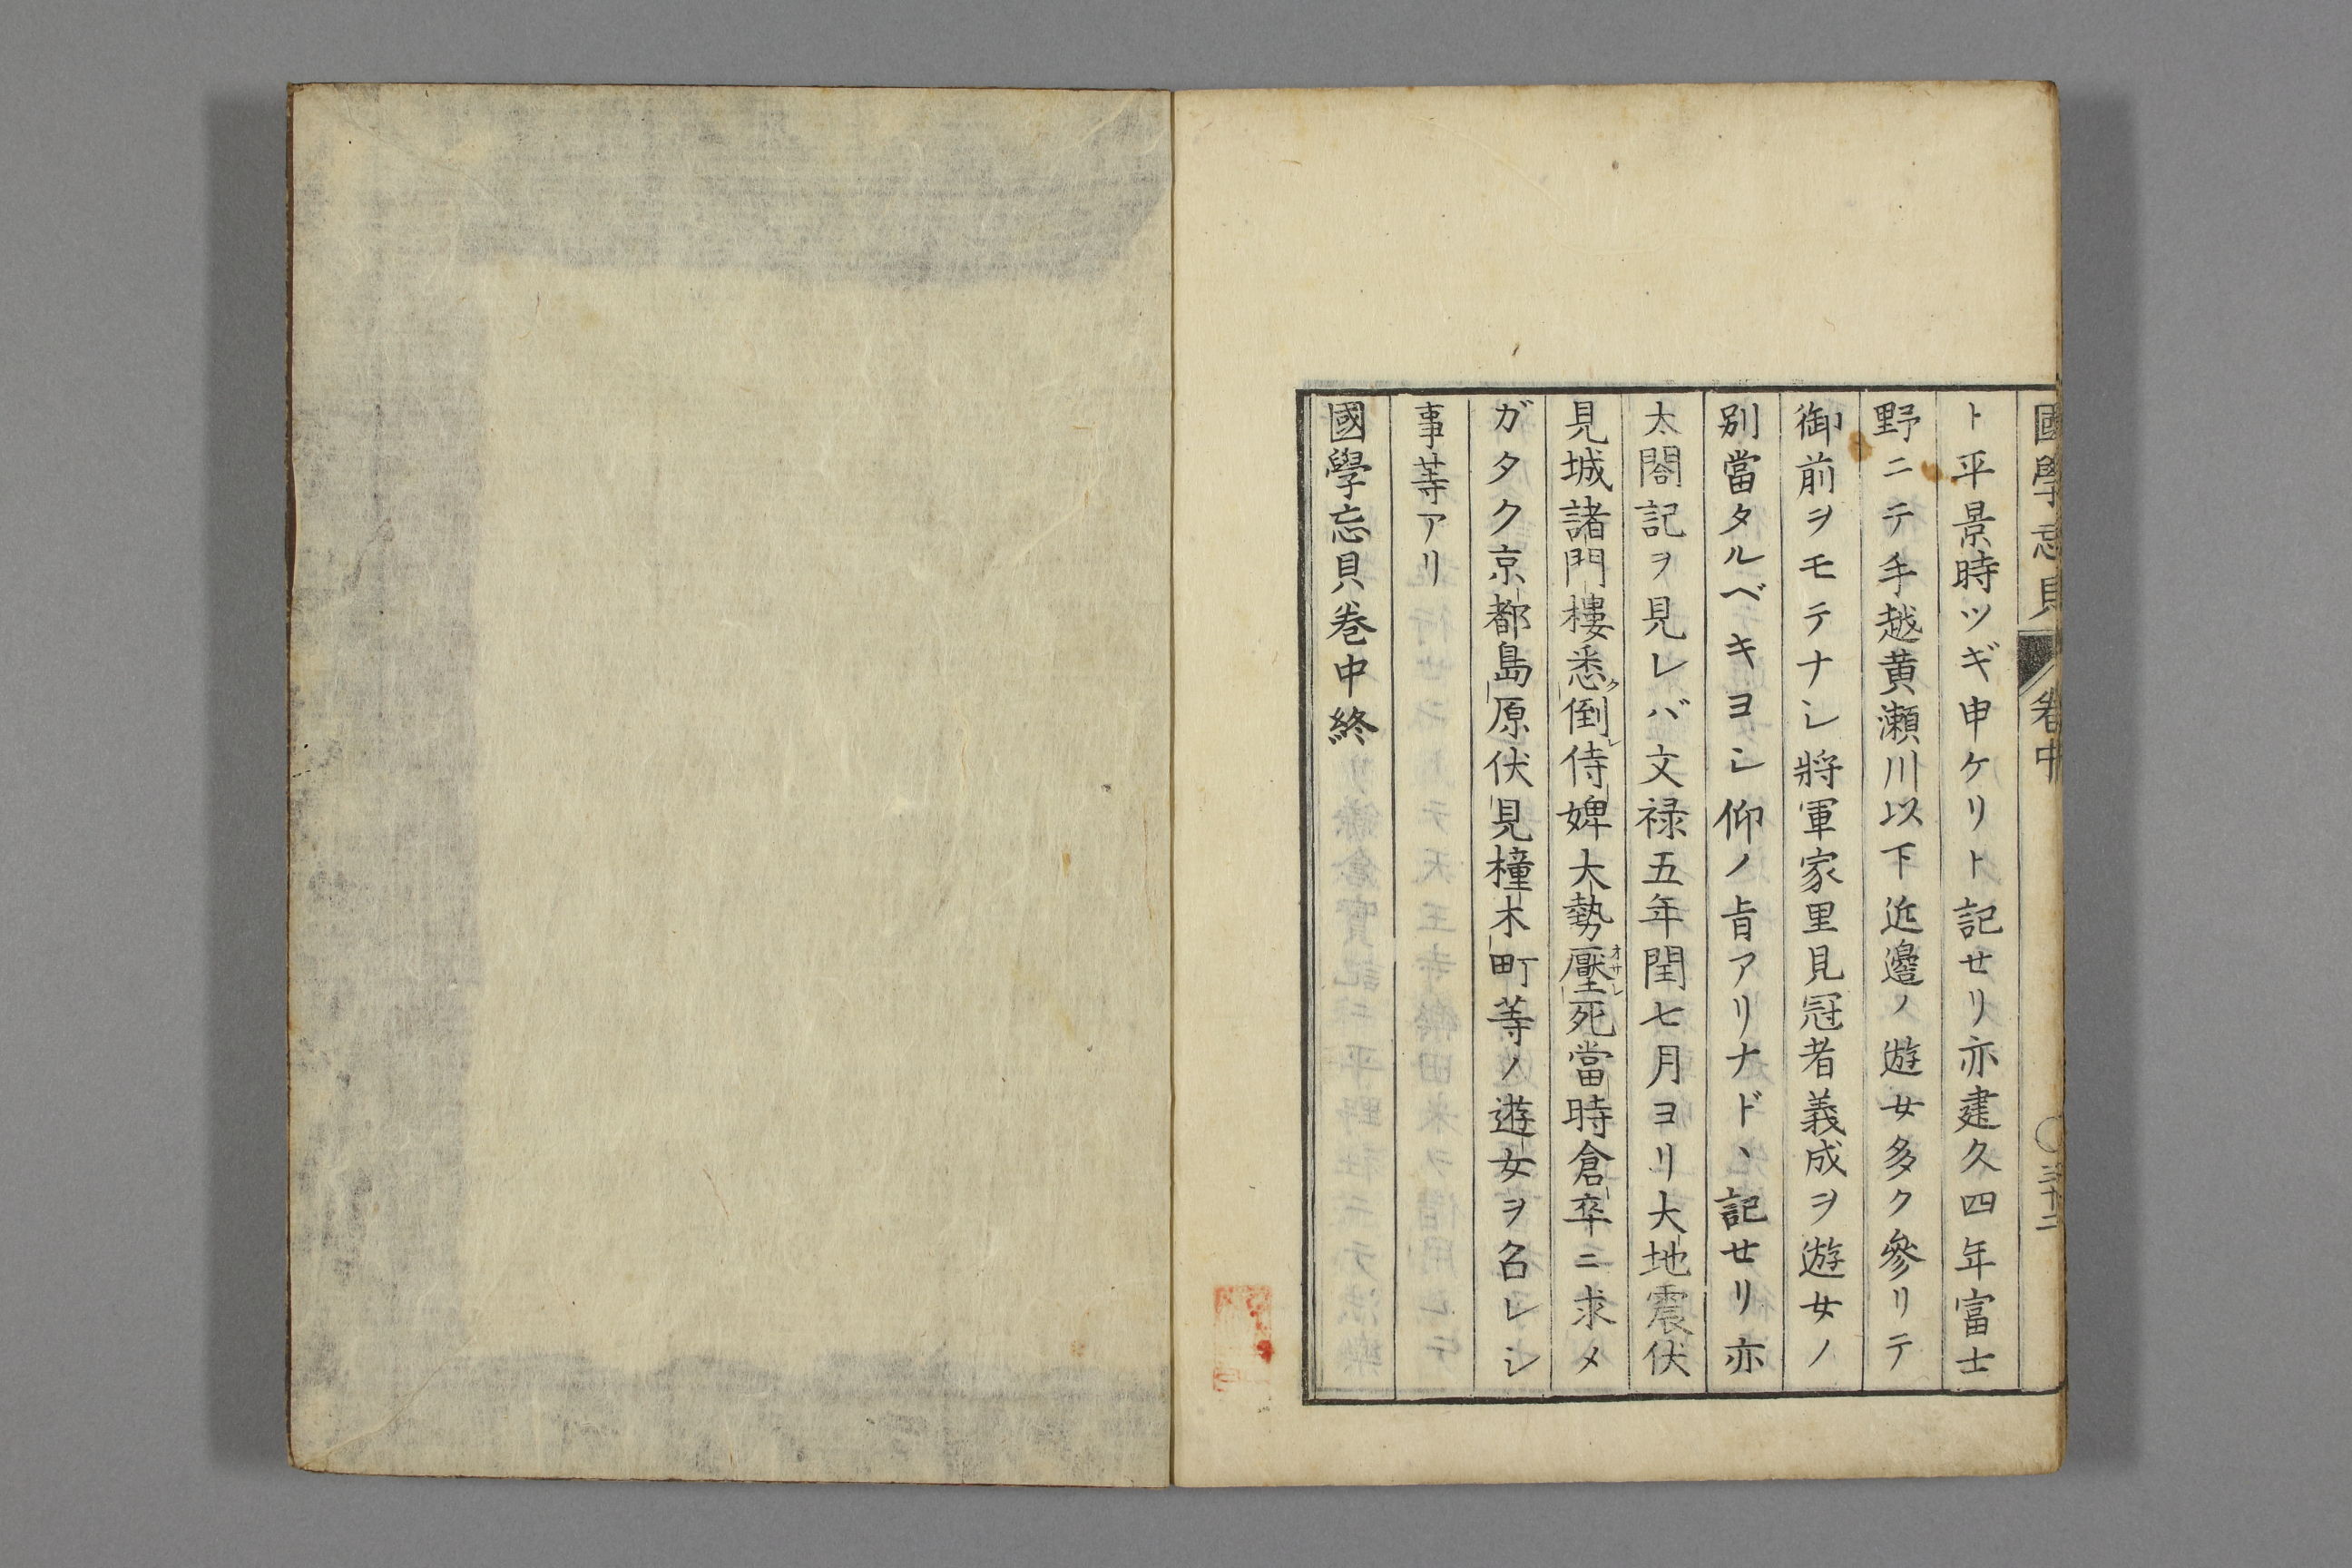 國學忘貝 卷中 〇三十二
ト平景時ツギ申ケリト記せリ亦建久四年富士
野ニテ手越黄瀬川以下近邊ノ遊女多ク參リテ
御前ヲモテナシ將軍家里見冠者義成ヲ遊女ノ
別當タルベキヨシ仰ノ旨アリナド、記せリ亦
太閤記ヲ見レバ文禄五年閏七月ヨリ大地震伏
見城諸門樓悉ク倒レ侍婢大勢壓オサレ死當時倉卒ニ求メ
ガタク京都島原伏見橦木町等ノ遊女ヲ召レシ
事等アリ
國學忘貝卷中終